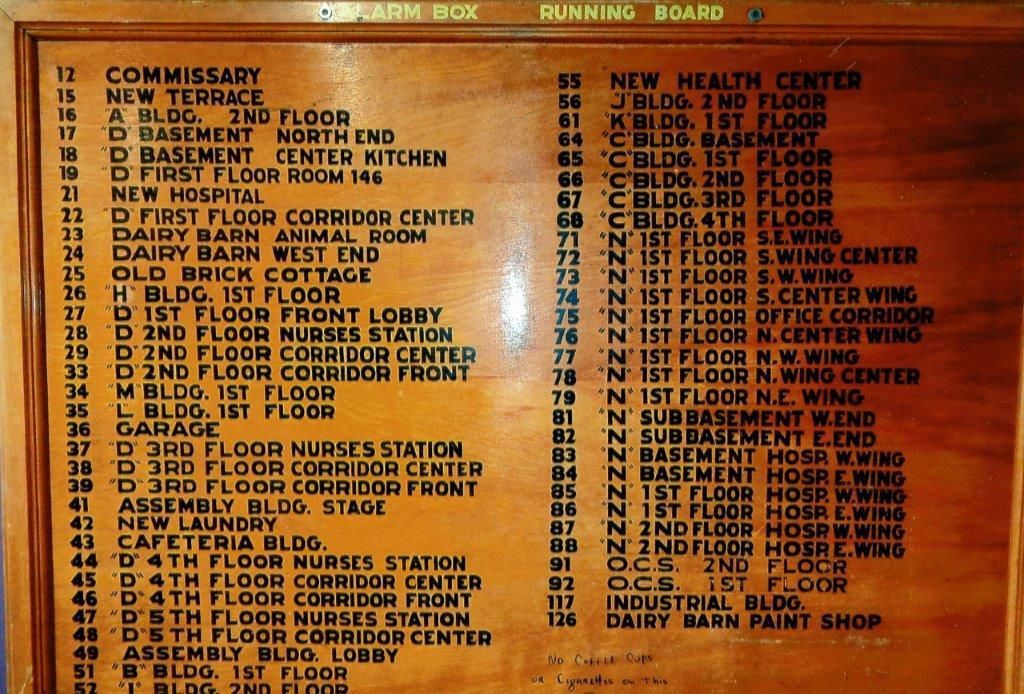 ALARM BOX RUNNING BOARD
12 COMMISSARY
15 NEW TERRACE
16 "A" BLDG. 2ND FLOOR
17 "D" BASEMENT NORTH END
18 "D" BASEMENT CENTER KITCHEN
19 "D" FIRST FLOOR ROOM 146
21 NEW HOSPITAL
22 "D" FIRST FLOOR CORRIDOR CENTER
23 DAIRY BARN ANIMAL ROOM
24 DAIRY BARN WEST END
25 OLD BRICK COTTAGE
26 "H" BLDG. 1ST FLOOR
27 "D" 1ST FLOOR FRONT LOBBY
28 "D" 2ND FLOOR NURSES STATION
29 "D" 2ND FLOOR CORRIDOR CENTER
33 "D" 2ND FLOOR CORRIDOR FRONT
34 "M" BLDG. 1ST FLOOR
35 "L" BLDG. 1ST FLOOR
36 GARAGE
37 "D" 3RD FLOOR NURSES STATION
38 "D" 3RD FLOOR CORRIDOR CENTER
39 "D" 3RD FLOOR CORRIDOR FRONT
41 ASSEMBLY BLDG. STAGE
42 NEW LAUNDRY
43 CAFETERIA BLDG.
44 "D" 4TH FLOOR NURSES STATION
45 "D" 4TH FLOOR CORRIDOR CENTER
46 "D" 4TH FLOOR CORRIDOR FRONT
47 "D" 5TH FLOOR NURSES STATION
48 "D" 5TH FLOOR CORRIDOR CENTER
49 ASSEMBLY BLDG. LOBBY
51 "B" BLDG. 1ST FLOOR
52 "I" BLDG. 2ND FLOOR
55 NEW HEALTH CENTER
56 "J" BLDG. 2ND FLOOR
61 "K" BLDG. 1ST FLOOR
64 "C" BLDG. BASEMENT
65 "C" BLDG. 1ST FLOOR
66 "C" BLDG. 2ND FLOOR
67 "C" BLDG. 3RD FLOOR
68 "C" BLDG. 4TH FLOOR
71 "N" 1ST FLOOR S.E. WING
72 "N" 1ST FLOOR S. WING CENTER
73 "N" 1ST FLOOR S.W. WING
74 "N" 1ST FLOOR S. CENTER WING
75 "N" 1ST FLOOR OFFICE CORRIDOR
76 "N" 1ST FLOOR N. CENTER WING
77 "N" 1ST FLOOR N.W. WING
78 "N" 1ST FLOOR N. WING CENTER
79 "N" 1ST FLOOR N.E. WING
81 "N" SUB BASEMENT W. END
82 "N" SUB BASEMENT E. END
83 "N" BASEMENT HOSP. W. WING
84 "N" BASEMENT HOSP. E. WING
85 "N" 1ST FLOOR HOSP. W. WING
86 "N" 1ST FLOOR HOSP. E. WING
87 "N" 2ND FLOOR HOSP. W. WING
88 "N" 2ND FLOOR HOSP. E. WING
91 O.C.S. 2ND FLOOR
92 O.C.S. 1ST FLOOR
117 INDUSTRIAL BLDG.
126 DAIRY BARN PAINT SHOP
No Coffee Cups
or Cigarettes on this